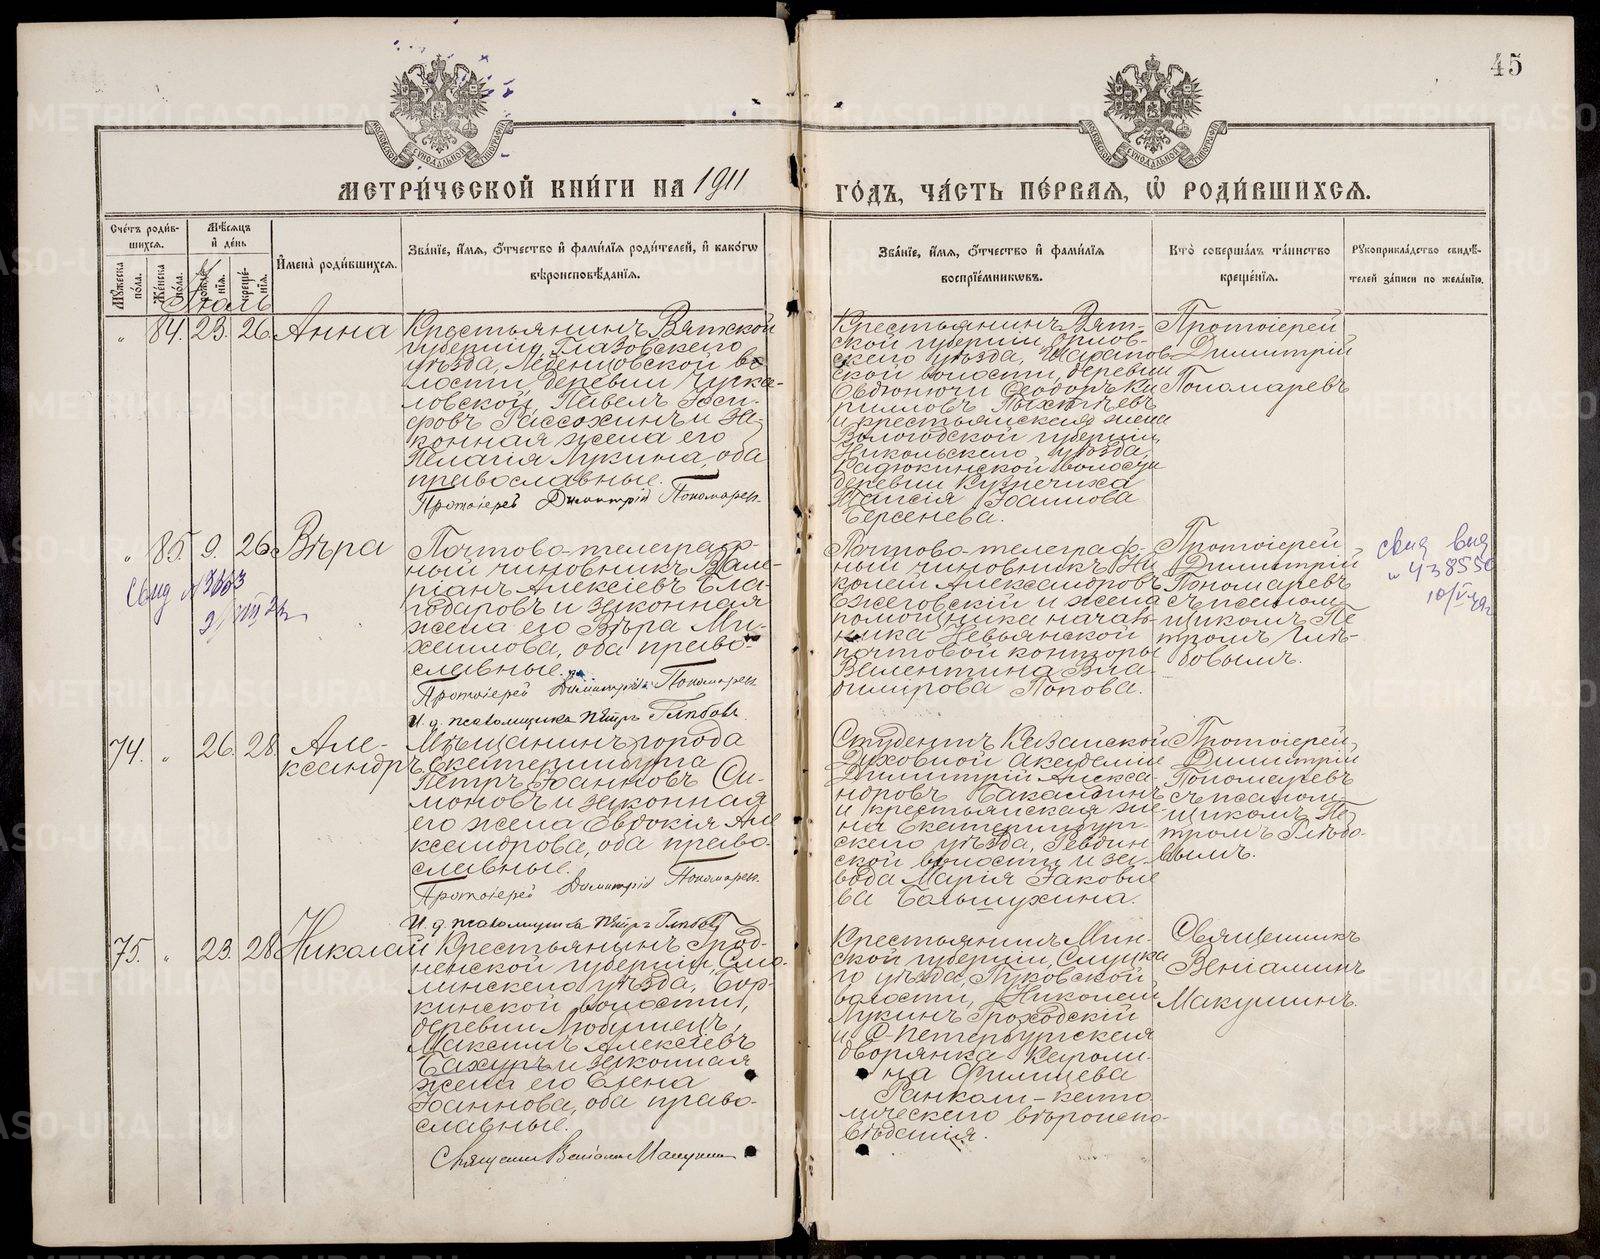 45
МЕТРИ́ЧЕСКОЙ КНИ́ГИ НА 1911
ГО́ДЪ, ЧА́СТЬ ПЕ́РВАЯ, Ѡ РОДИ́ВШИХСЯ.
Сче́тъ роди́в-
шихся.
Мѣ́сяцъ
и де́нь
Мꙋ́жеска по́ла.
Же́нска по́ла.
рожде́нія.
креще́нія.
Имена̀ роди́вшихся.
Зва́ніе, и́мя, ѻ́тчество и фами́лія роди́телей, и како́гѡ
вѣроисповѣ́данія.
Зва́ніе, и́мя, ѻ́тчество и фами́лія
воспріе́мниковъ.
Кто̀ соверша́лъ та́инство
креще́нія.
Рꙋкоприкла́дство свидѣ́-
телей за́писи по жела́нію.
Іюль
„ 84. 23. 26. Анна
Крестьянинъ Вятской
губерніи, Глазовскаго
уѣзда,
волости, деревни Чурка-
ловской, Павелъ Іоси-
фовъ Рассохинъ и за-
конная жена его
Пелагія Лукина, оба
православные.
Протоіерей Димитрій Пономаревъ.
Крестьянинъ Вят-
ской губерніи, Орлов-
скаго уѣзда,
ской волости, деревни
Ѳеодоръ Ки-
рилловъ
и крестьянская жена
Вологодской губерніи,
Никольскаго уѣзда,
волости
деревни Кузнечиха
Таисія Іоаннова
Берсенева.
Протоіерей
Димитрій
Пономаревъ
„ 85. 9. 26. Вѣра
Почтово-телеграф-
ный чиновникъ Вале-
ріанъ Алексіевъ Бла-
годаровъ и законная
жена его Вѣра Ми-
хаилова, оба право-
славные.
Протоіерей Димитрій Пономаревъ
И. д. псаломщика Петръ Глѣбовъ.
Почтово-телеграф-
ный чиновникъ Ни-
колай Александровъ
Ежеговскій и жена
помощника началь-
ника Невьянской
почтовой конторы
Валентина Вла-
димірова Попова.
Протоіерей
Димитрій
Пономаревъ
съ псалом-
щикомъ Пе-
тромъ Глѣ-
бовымъ.
Свид №3663
свид выд
№ 438550
74. „ 26. 28. Але-
ксандръ
Мѣщанинъ города
Екатеринбурга
Петръ Іоанновъ Си-
моновъ и законная
его жена Евдокія Але-
ксандрова, оба право-
славные.
Протоіерей Димитрій Пономаревъ.
И. д. псаломщика Петръ Глѣбовъ
Студентъ Казанской
Духовной Академіи
Димитрій Алекса-
ндровъ Бакалдинъ
и крестьянская же-
на Екатеринбург-
скаго уѣзда, Ревдин-
ской волости и за-
вода Марія Іаковле-
ва Балышухина.
Протоіерей
Димитрій
Пономаревъ
съ псалом-
щикомъ Пе-
тромъ Глѣбо-
вымъ.
75. „ 23. 28. Николай
Крестьянинъ Грод-
ненской губерніи, Сло-
нимскаго уѣзда,
волости,
деревни
Максимъ Алексіевъ
Бахуръ и законная
жена его Елена
Іоаннова, оба право-
славные.
Священникъ Веніаминъ Макушинъ
Крестьянинъ Мин-
ской губерніи, Слуцка-
го уѣзда,
волости, Николай
Лукинъ
и С-Петербургская
дворянка Кароли-
на
Римско-като-
лическаго вѣроиспо-
вѣданія.
Священникъ
Веніаминъ
Макушинъ.